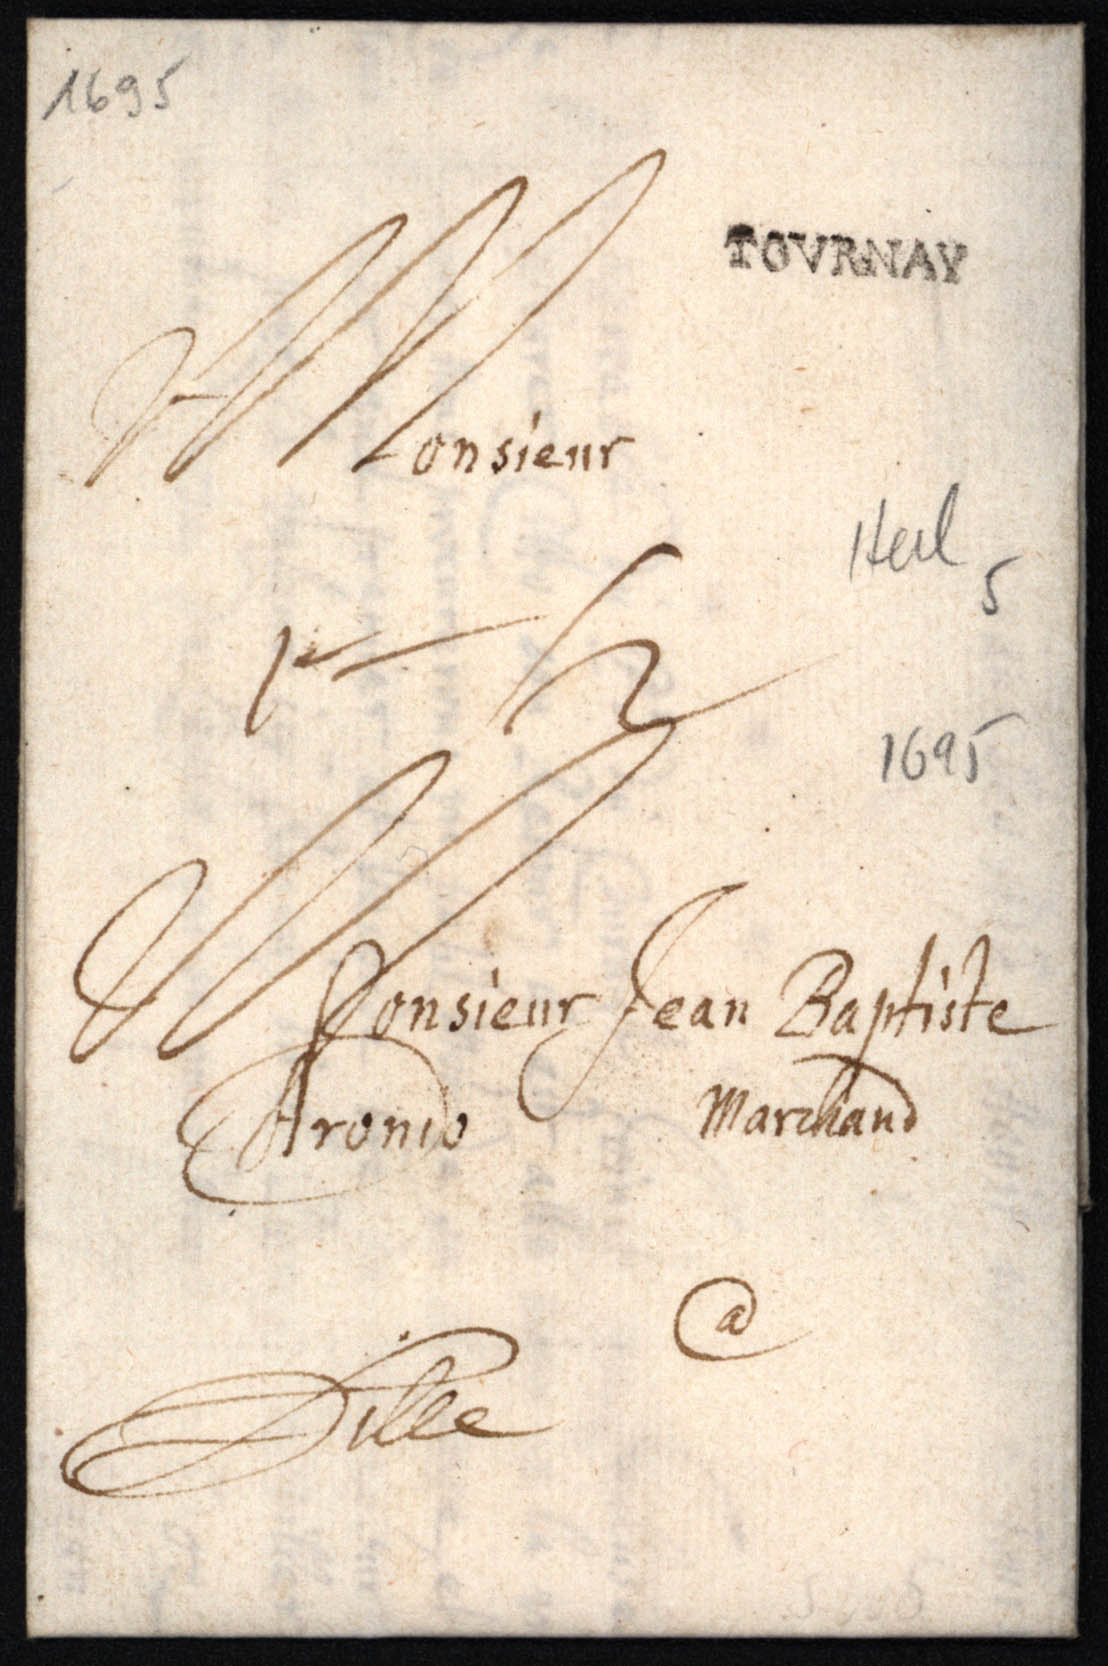 1695
TOVRNAY
Monsieur
Herl 5
1695
Monsieur Jean Baptiste
Aronio Marchand
a
Lille